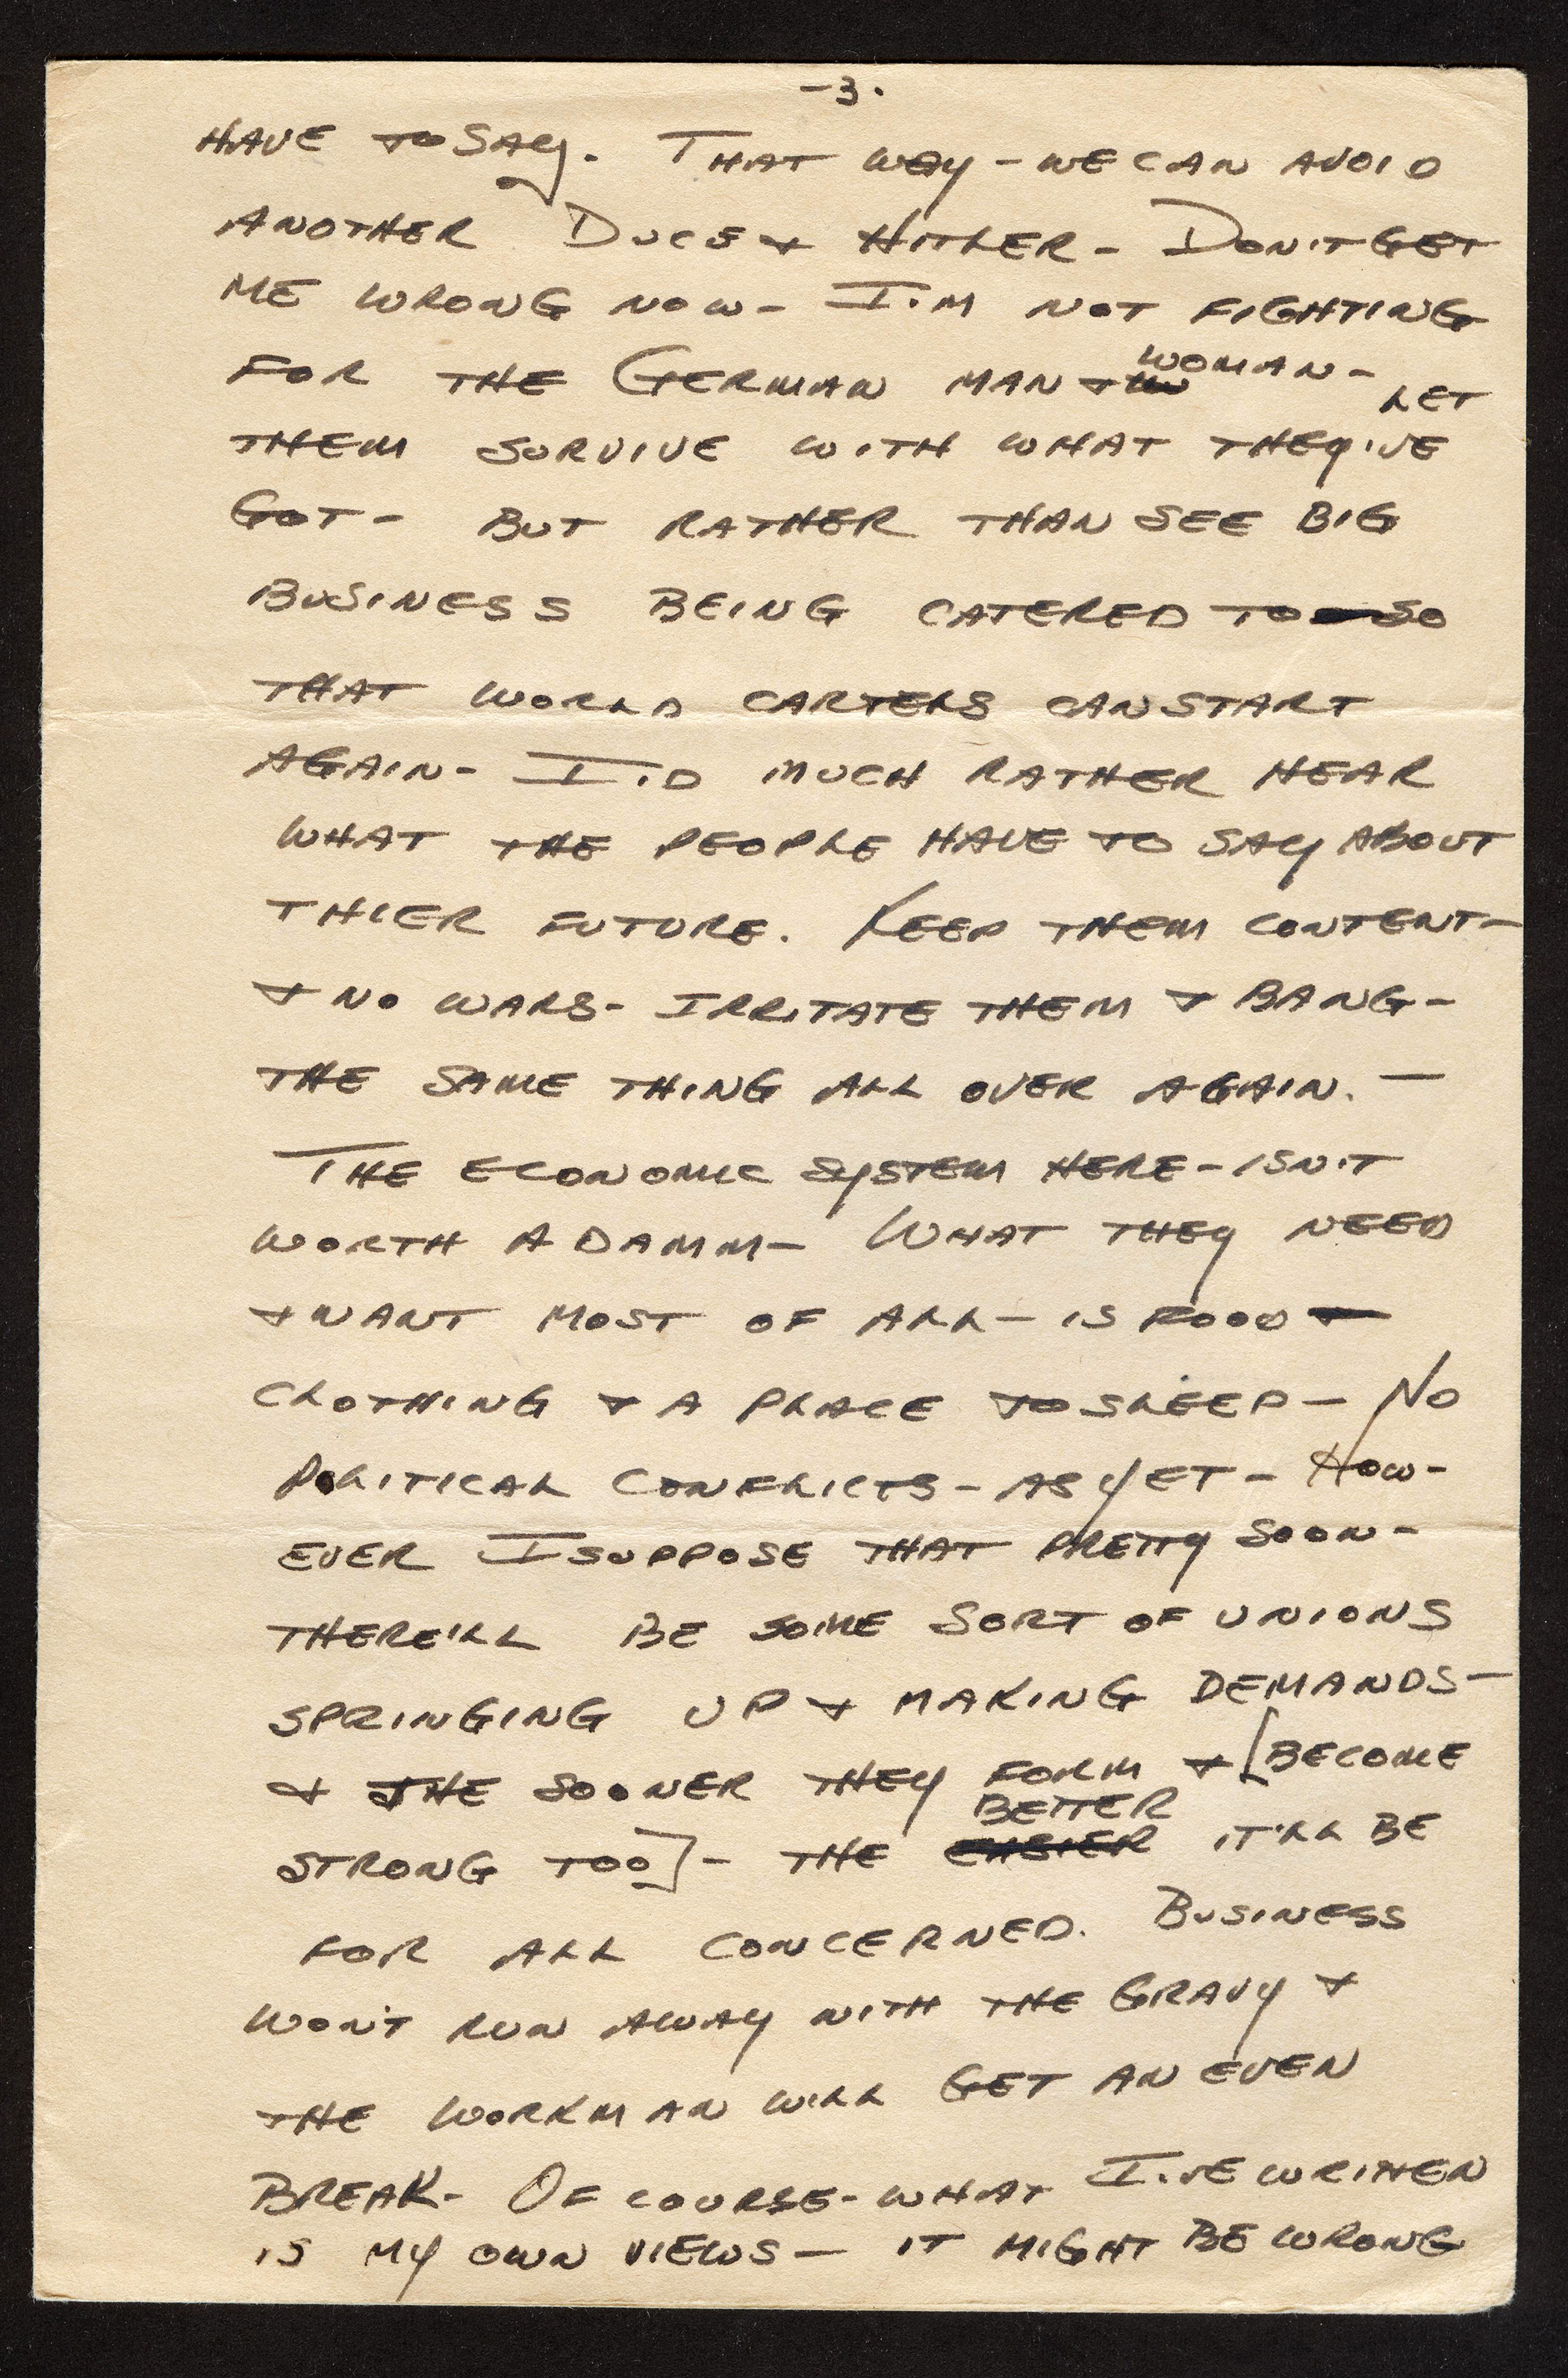 -3.
HAVE TO SAY. THAT WAY - WE CAN AVOID
ANOTHER DUCE & HITLER - DON'T GET
ME WRONG NOW - I'M NOT FIGHTING
FOR THE GERMAN MAN & WOMAN - LET
THEM SURVIVE WITH WHAT THEY'VE
GOT - BUT RATHER THAN SEE BIG
BUSINESS BEING CATERED TO SO
THAT WORLD CARTELS CAN START
AGAIN - I'D MUCH RATHER HEAR
WHAT THE PEOPLE HAVE TO SAY ABOUT
THIER FUTURE. KEEP THEM CONTENT -
& NO WARS - IRRITATE THEM & BANG -
THE SAME THING ALL OVER AGAIN. -
THE ECONOMIC SYSTEM HERE - ISN'T
WORTH A DAMM - WHAT THEY NEED
& WANT MOST OF ALL - IS FOOD
CLOTHING & A PLACE TO SLEEP - NO
POLITICAL CONFLICTS - AS YET - HOW-
EVER I SUPPOSE THAT PRETTY SOON -
THERE'LL BE SOME SORT OF UNIONS
SPRINGING UP & MAKING DEMANDS -
& THE SOONER THEY FORM & [BECOME
STRONG TOO] - THE EASIER BETTER IT'LL BE
FOR ALL CONCERNED. BUSINESS
WON'T RUN AWAY WITH THE GRAVY &
THE WORKMAN WILL GET AN EVEN
BREAK - OF COURSE - WHAT I'VE WRITTEN
IS MY OWN VIEWS - IT MIGHT BE WRONG